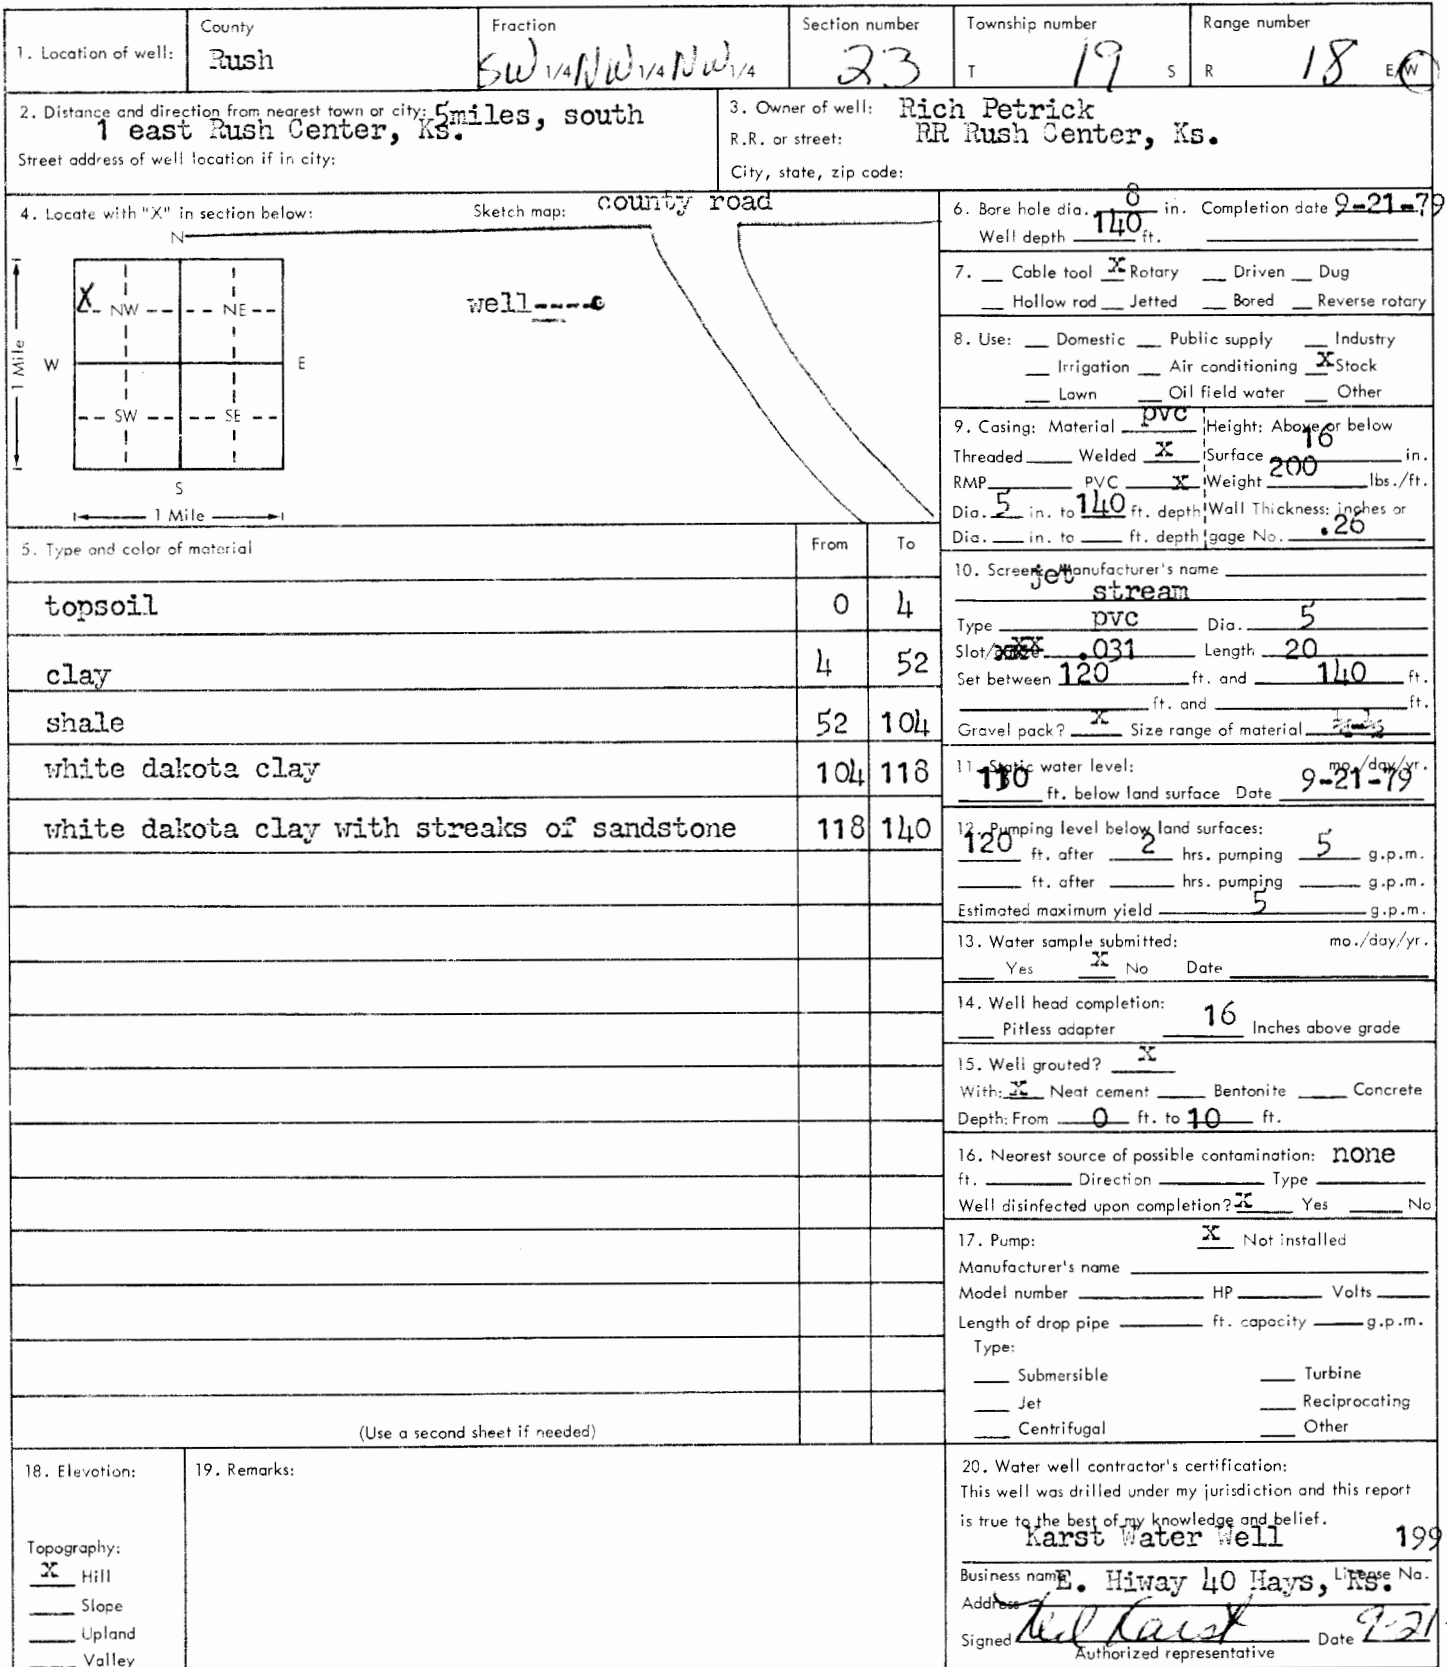 1. Location of well:
County
Rush
Fraction
SW 1/4 NW 1/4 NW 1/4
Section number
23
Township number
T 19 S
Range number
R 18 E/W
2. Distance and direction from nearest town or city: 5miles, south
1 east Rush Center, Ks.
Street address of well location if in city:
3. Owner of well: Rich Petrick
R.R. or street: RR Rush Center, Ks.
City, state, zip code:
4. Locate with "X" in section below:
Sketch map: county road
N
X
NW NE
W E
1 Mile
SW SE
S
1 Mile
well
5. Type and color of material From To
topsoil 0 4
clay 4 52
shale 52 104
white dakota clay 104 118
white dakota clay with streaks of sandstone 118 140
(Use a second sheet if needed)
6. Bore hole dia. 8 in. Completion date 9-21-79
Well depth 140 ft.
7. __ Cable tool X Rotary __ Driven __ Dug
__ Hollow rod __ Jetted __ Bored __ Reverse rotary
8. Use: __ Domestic __ Public supply __ Industry
__ Irrigation __ Air conditioning X Stock
__ Lawn __ Oil field water __ Other
9. Casing: Material pvc Height: Above or below
Threaded ____ Welded X Surface 16 in.
RMP ____ PVC X Weight 200 lbs./ft.
Dia. 5 in. to 140 ft. depth Wall Thickness: inches or
Dia. __ in. to __ ft. depth gage No. .26
10. Screen: Manufacturer's name
jet stream
Type pvc Dia. 5
Slot/ .031 Length 20
Set between 120 ft. and 140 ft.
____ ft. and ____ ft.
Gravel pack? X Size range of material
11. Static water level: mo./day/yr.
ft. below land surface Date 9-21-79
12. Pumping level below land surfaces:
120 ft. after 2 hrs. pumping 5 g.p.m.
____ ft. after ____ hrs. pumping ____ g.p.m.
Estimated maximum yield 5 g.p.m.
13. Water sample submitted: mo./day/yr.
__ Yes X No Date
14. Well head completion:
__ Pitless adapter 16 Inches above grade
15. Well grouted? X
With: X Neat cement ____ Bentonite ____ Concrete
Depth: From 0 ft. to 10 ft.
16. Nearest source of possible contamination: none
ft. ____ Direction ____ Type ____
Well disinfected upon completion? X Yes ____ No
17. Pump: X Not installed
Manufacturer's name
Model number ____ HP ____ Volts ____
Length of drop pipe ____ ft. capacity ____ g.p.m.
Type:
__ Submersible __ Turbine
__ Jet __ Reciprocating
__ Centrifugal __ Other
18. Elevation:
Topography:
X Hill
__ Slope
__ Upland
__ Valley
19. Remarks:
20. Water well contractor's certification:
This well was drilled under my jurisdiction and this report
is true to the best of my knowledge and belief.
Karst Water Well 199
Business name License No.
Address E. Hiway 40 Hays, Ks.
Signed Karst Date 9-21
Authorized representative